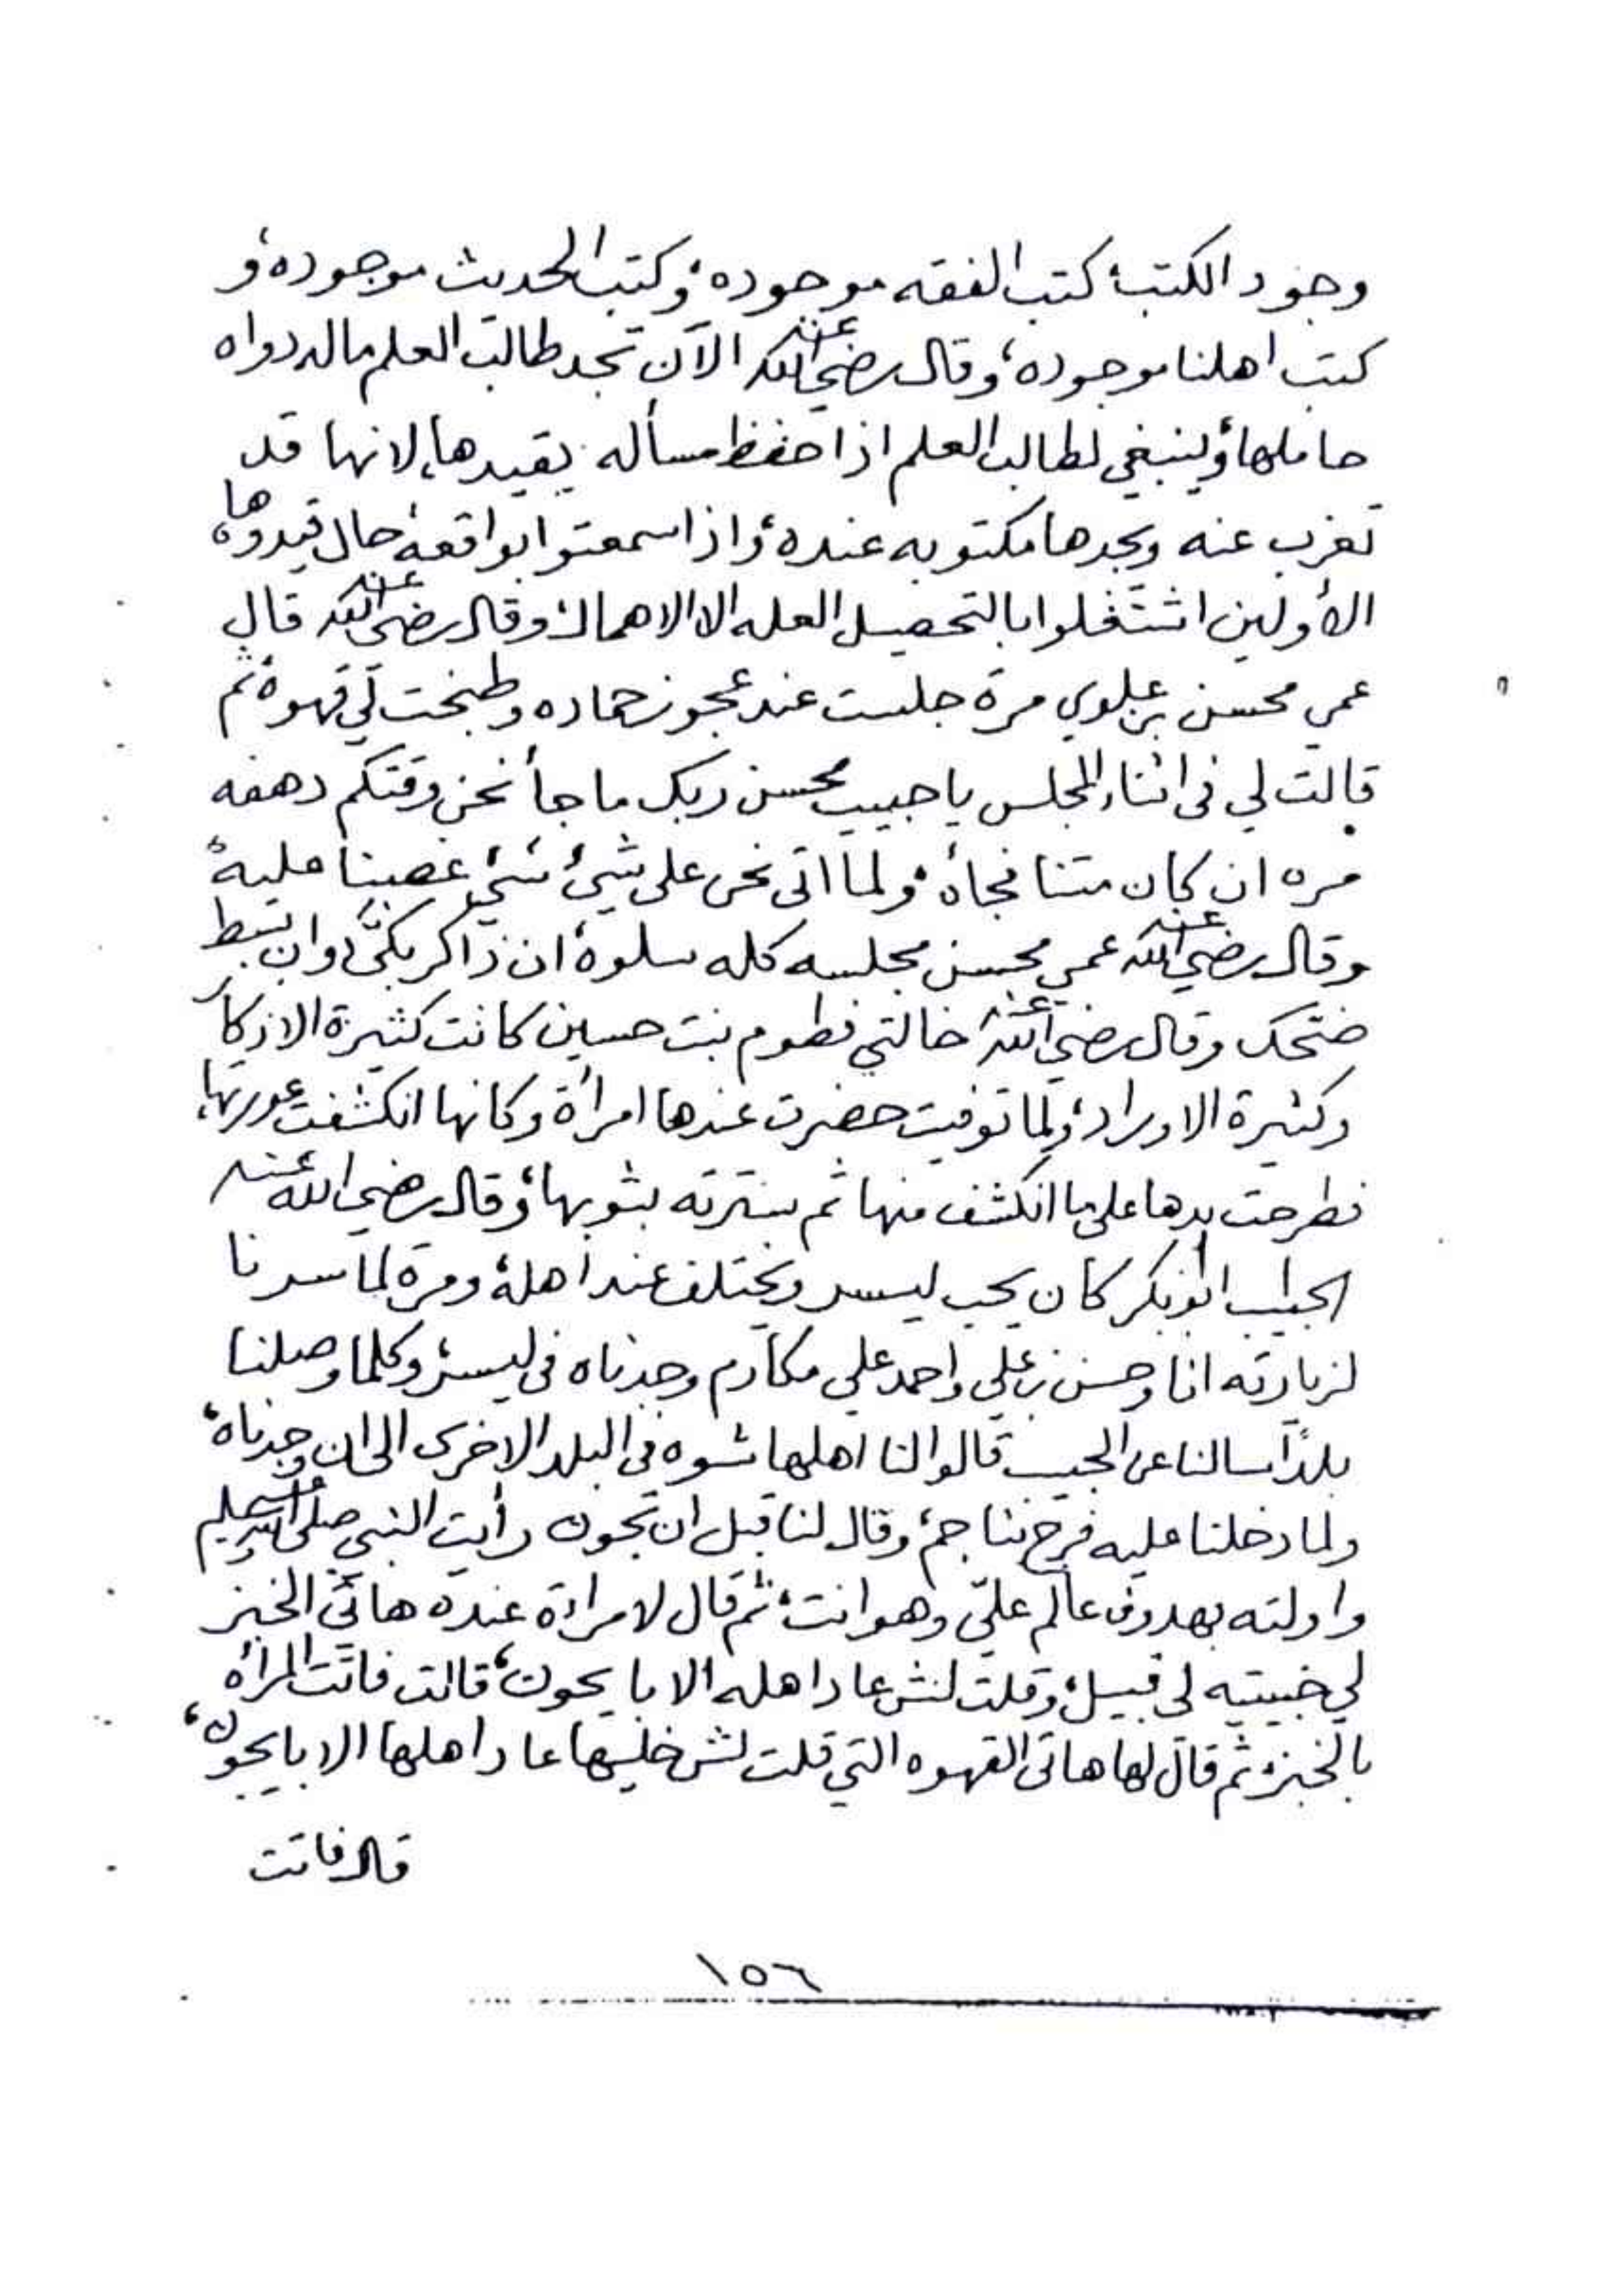 وجود الكتب، كتب الفقه موجوده، وكتب الحديث موجوده، و
كتب اهلنا موجوده، وقال رضي الله عنه الآن تجد طالب العلم ماله دواه
حاملها، وينبغي لطالب العلم اذا حفظ مسأله يقيدها، لانها قد
تغرب عنه ويجدها مكتوبه عنده، واذا سمعتوا بواقعة حال قيدوها،
الأولين اشتغلوا بالتحصيل العله الا الاهمال، وقال رضي الله عنه قال
عمي محسن بن علوي مرة جلست عند عجوز حماده وطبخت لي قهوة، ثم
قالت لي في اثناء المجلس يا حبيب محسن ربك ما جأ نحن وقتكم دهفه
مره ان كان متنا فجأه، ولما اتى نحن على شيئ شيئ عصينا عليه،
وقال رضي الله عنه عمي محسن مجلسه كله سلوة، ان ذاكر بكّى، وان بسط
ضحك وقال رضي الله عنه خالتي فطوم بنت حسين كانت كثيرة الاذكار
وكثيرة الاوراد، ولما توفيت حضرت عندها امرأة وكانها انكشفت عورتها،
فطرحت يدها على ما انكشف منها ثم سترته بثوبها، وقال رضي الله عنه
الحبيب ابوبكر كان يحب ليسر ويختلف عند اهله، ومرة لما سرنا
لزيارته انا وحسن بن علي واحمد علي مكارم وجدناه في ليسر، وكلما وصلنا
بلدًا سالنا عن الحبيب قالوا لنا اهلها شوه في البلد الاخرى الى ان وجدناه،
ولما دخلنا عليه فرح بنا جم، وقال لنا قبل ان تجون رأيت النبي صلى الله عليه وسلم
واولته بهدوف عالم عليّ وهو انت، ثم قال لامراءة عنده هاتي الخبز
لي خبيتيه لي قبيل، وقلت لش عاد اهله الا با يجون، قالت فاتت المرأه
بالخبز، ثم قال لها هاتي القهوه التي قلت لش خليها عاد اهلها الا با يجون،
قال فاتت
١٥٦